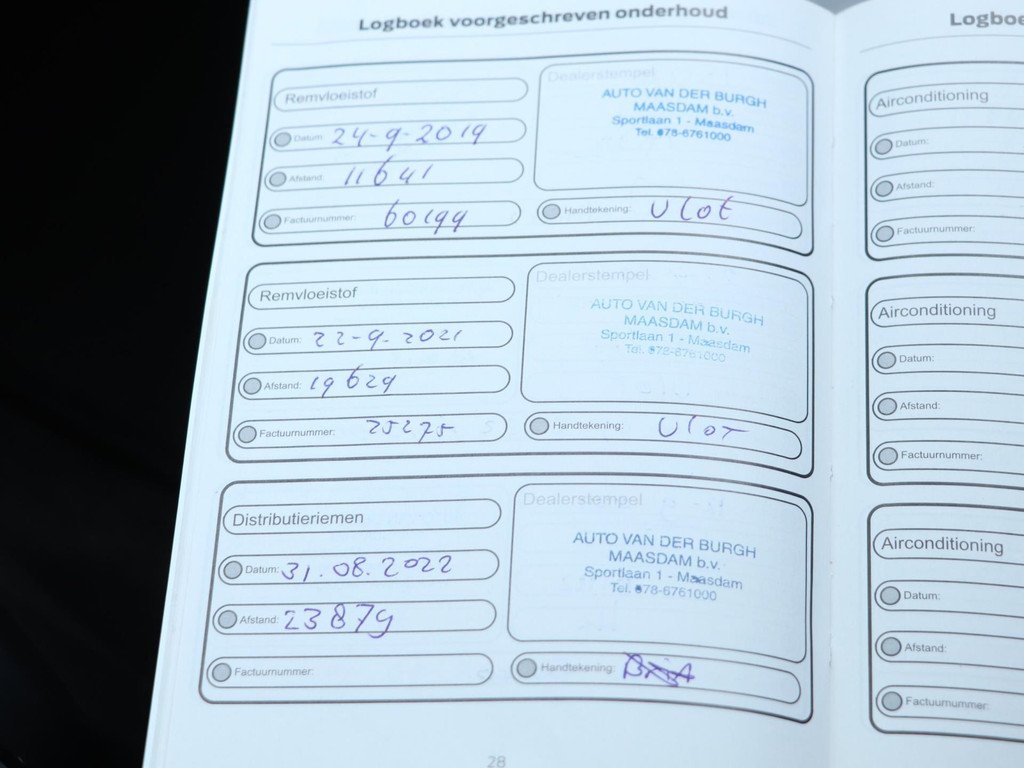 Logboek voorgeschreven onderhoud
Remvloeistof
Datum: 24-9-2019
Afstand: 11641
Factuurnummer: 60199
Dealerstempel
AUTO VAN DER BURGH
MAASDAM b.v.
Sportlaan 1 - Maasdam
Tel. 078-6761000
Handtekening: Ulot
Remvloeistof
Datum: 22-9-2021
Afstand: 19629
Factuurnummer: 25275
Dealerstempel
AUTO VAN DER BURGH
MAASDAM b.v.
Sportlaan 1 - Maasdam
Tel. 078-6761000
Handtekening: Ulot
Distributieriemen
Datum: 31.08.2022
Afstand: 23879
Factuurnummer:
Dealerstempel
AUTO VAN DER BURGH
MAASDAM b.v.
Sportlaan 1 - Maasdam
Tel. 078-6761000
Handtekening:
28
Logboe
Airconditioning
Datum:
Afstand:
Factuurnummer:
Airconditioning
Datum:
Afstand:
Factuurnummer:
Airconditioning
Datum:
Afstand:
Factuurnummer: